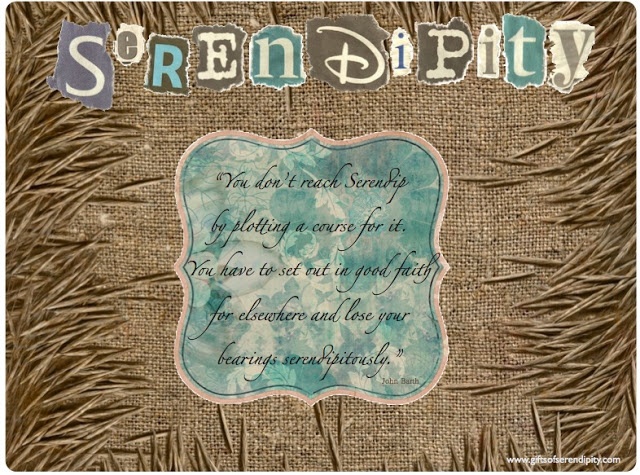 SeRENDiPity
“You don't reach Serendip
by plotting a course for it.
You have to set out in good faith
for elsewhere and lose your
bearings serendipitously.”
John Barth
www.giftsofserendipity.com